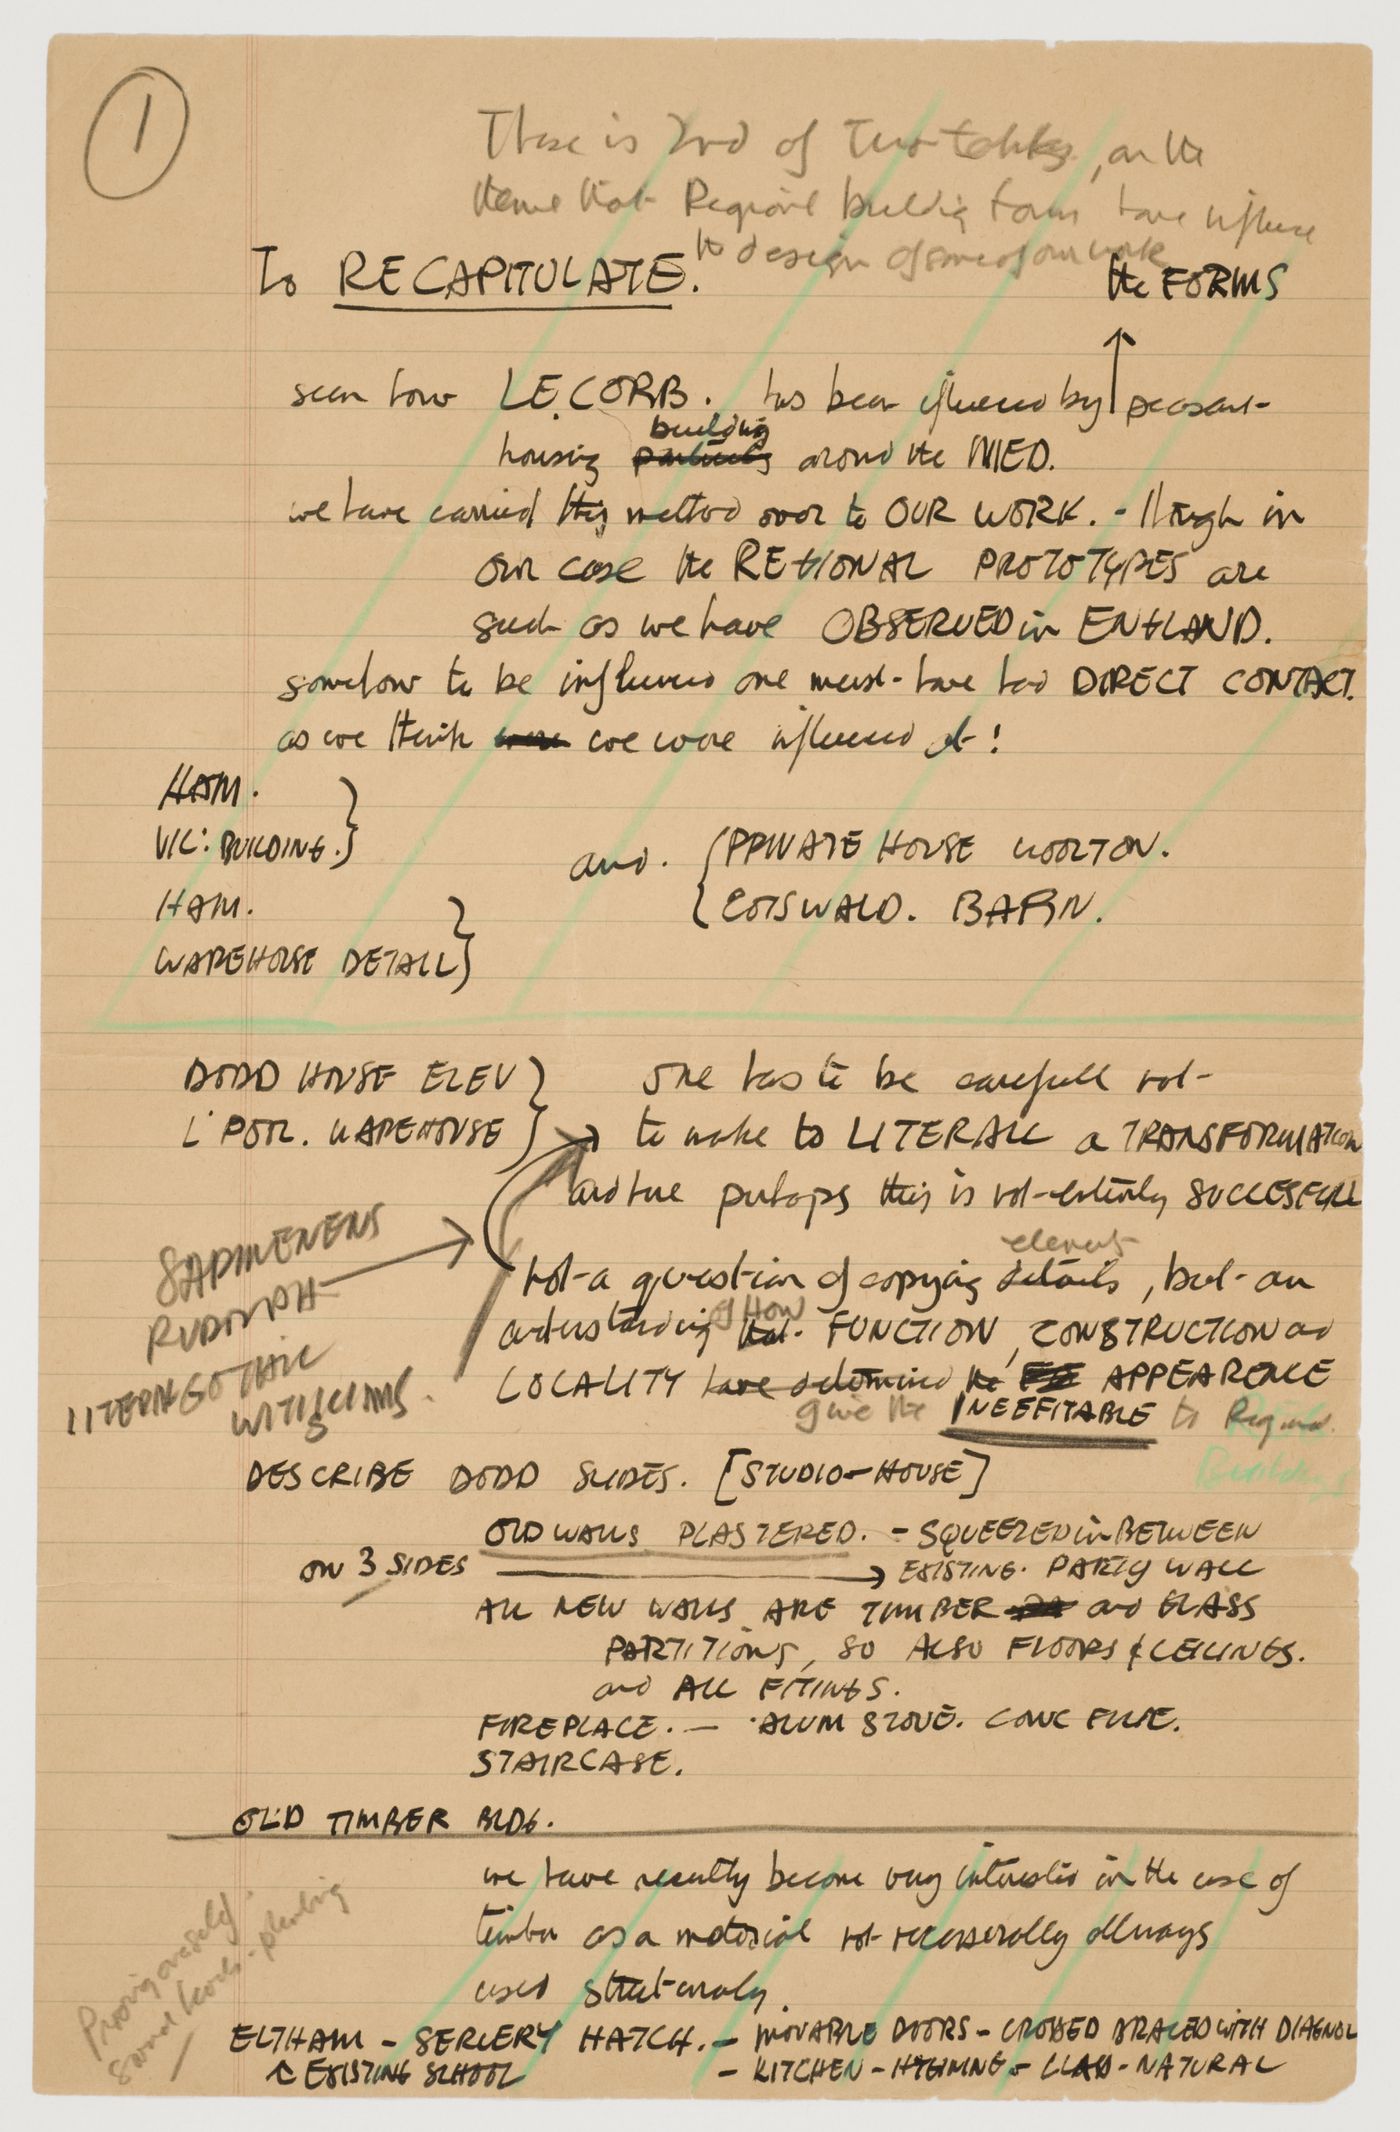 1
This is 2nd of Two talks, on the
theme that Regional building forms have influence
the design of some of our work
To RECAPITULATE.
the FORMS
seen how LE CORB. has been influenced by peasant
housing building around the MED.
we have carried this method over to OUR WORK. - though in
our case the REGIONAL PROTOTYPES are
such as we have OBSERVED in ENGLAND.
somehow to be influenced one must have had DIRECT CONTACT.
as we think were we were influenced at!
HAM.
VIC: BUILDING.
and. PRIVATE HOUSE
HAM.
COTSWALD. BARN.
WAREHOUSE DETAIL
DODD HOUSE ELEV
one has to be carefull not
L'POOL. WAREHOUSE
to make to LITERALL a TRANSFORMATION
and here perhaps this is not entirely SUCCESFULL
SAARINENENS
RUDOLPH
element
not a question of copying details, but an
of HOW
understanding that FUNCTION, CONSTRUCTION and
LOCALITY have determined the APPEARENCE
give the INEFFITABLE to Regional
Buildings
DESCRIBE DODD SLIDES. [STUDIO-HOUSE]
OLD WALLS PLASTERED. - SQUEEZED in BETWEEN
ON 3 SIDES → EXISTING. PARTY WALL
ALL NEW WALLS ARE TIMBER and GLASS
PARTITIONS, SO ALSO FLOORS & CEILINGS.
and ALL FITINGS.
FIREPLACE. - ALUM STOVE. CONC FLUE.
STAIRCASE.
OLD TIMBER BLDG.
we have recently become very interested in the use of
timber as a material not necesserally allways
used structuraly
ELTHAM - SERVERY HATCH. - MOVABLE DOORS - CROSSED BRACED WITH DIAGNOL
EXISTING SCHOOL
- KITCHEN - CLAD - NATURAL